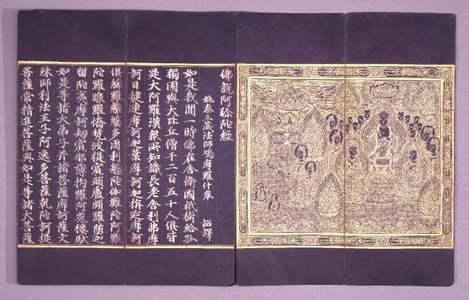 佛說阿弥陁經
姚秦三藏法師鳩摩羅什奉 詔譯
如是我聞一時佛在舍衛國祇樹給孤
獨園與大比丘僧千二百五十人俱皆
是大阿羅漢衆所知識長老舍利弗摩
訶目揵連摩訶迦葉摩訶迦旃延摩訶
俱絺羅離婆多周利槃陁伽難陁阿難
陁羅睺羅憍梵波提賓頭盧頗羅墮迦
留陁夷摩訶劫賓那薄拘羅阿㝹樓馱
如是等諸大弟子并諸菩薩摩訶薩文
殊師利法王子阿逸多菩薩乾陁訶提
菩薩常精進菩薩與如是等諸大菩薩